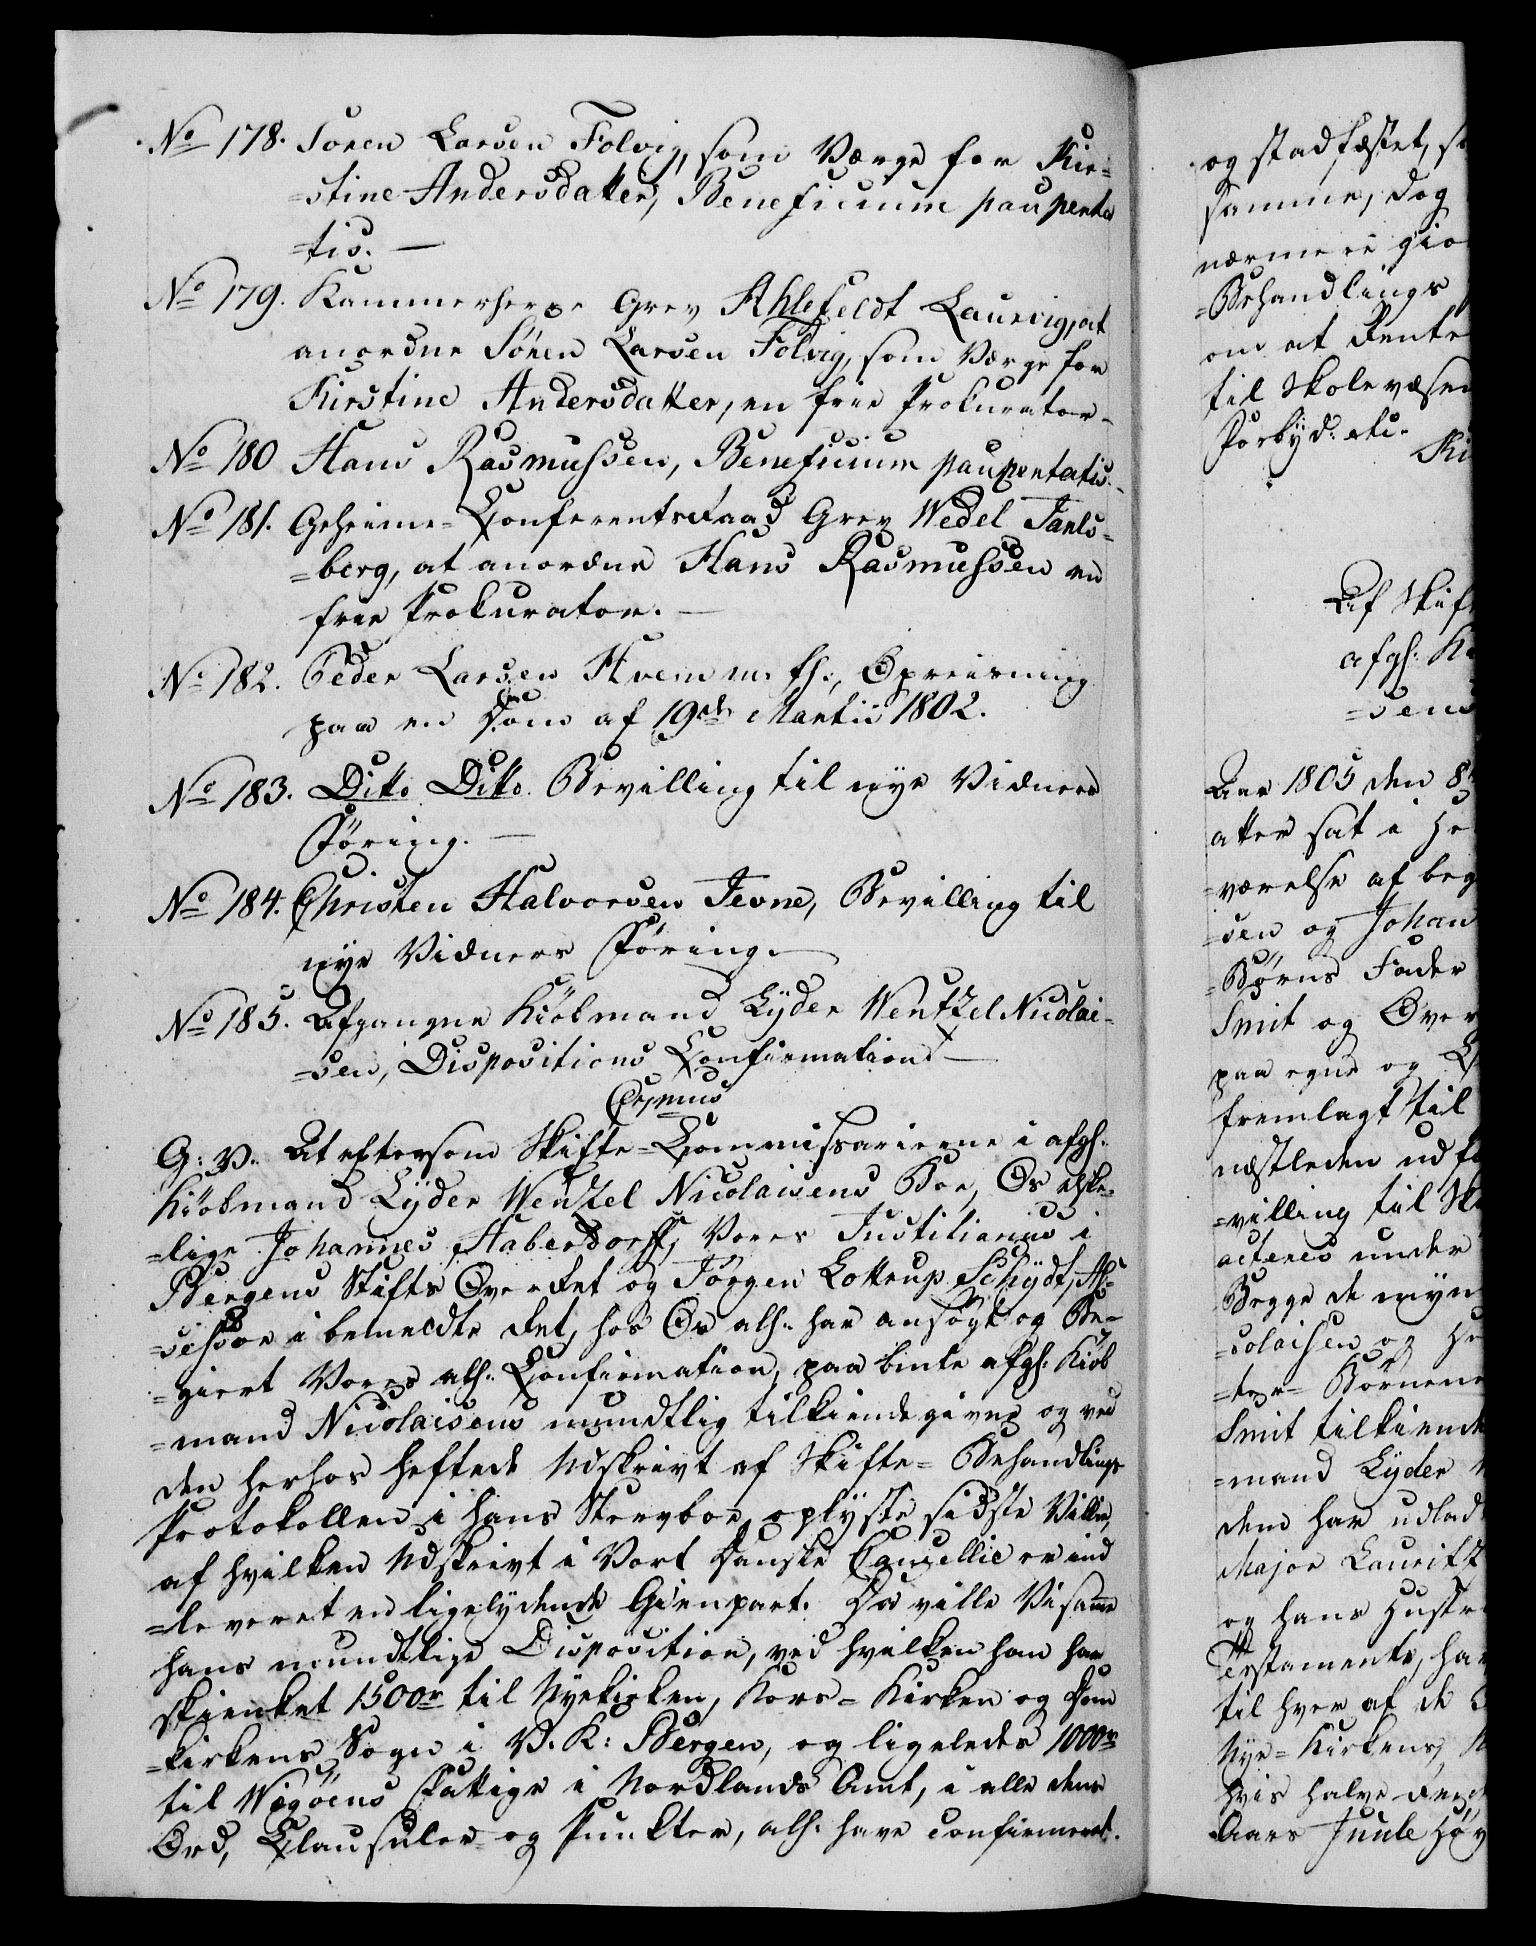 No 178. Sören Larsen Folvig, som Værge for Kir=
=stine Andersdatter, Beneficium pauperta
=tis. —
No 179. Kammerherre Grev Ahlefeldt Laurvig, at
anordne Sören Larsen Folvig, som Værge for
Kirstine Andersdatter, en frie Prokurator –
No 180 Hans Rasmussen, Beneficium paupertatis. –
No 181. Geheime=Conferentsraad Grev Wedel Jarls=
=berg, at anordne Hans Rasmussen en
frie Prokurator. —
No 182. Peder Larsen Hvem m. fl., Opreisning
paa en Dom af 19de Martii 1802.
No 183. Ditto Ditto Bevilling til nye Vidners
Föring. —
No 184. Christen Halvorsen Jevne, Bevilling til
nye Vidners Föring. —
No 185. Afgangne Kiöbmand Lyder Wentzel Nicolai=
=sen, Dispositions Confirmation —
G: V. At eftersom Skifte=Commissarierne i afg:
Kiöbmand Lyder Wentzel Nicolaisens Boe, Os elske=
=lige Johannes Haberdorff, Vores Justitiarius i
Bergens Stifts Overret og Jörgen Lottrup Schydt, As=
=sessor i bemeldte Ret, hos Os all: har ansögt og Be=
=giert Vores all: Confirmation, paa bmte afg: Kiöb
=mand Nicolaisens mundtlig tilkiendegivne og ved
den herhos heftede Udskrivt af Skifte=Behandlings
Protokollen i hans Stervboe, oplyste sidste Villie,
af hvilken Udskrivt i Vort Danske Cancellie er ind
=leveret en ligelydende Gienpart. Da ville Vi samme
hans mundtlige Disposition, ved hvilken han har
skienket 1500r til Nyekirken, Kors=Kirken og Dom
=kirkens Sogn i V. K: Bergen, og ligeledes 1000r
til Wægöens Fattige i Nordlands Amt, i alle dens
Ord, Clausuler og Punkter, all: have confirmeret.
og stadfæstet, s
samme, dog
nærmere gio
=Behandlings
om at Rente
til Skolevæsen
Forbyd: etc.
Ki
Af Skif
afg: K
=sens
Aar 1805 den 8
atter sat i He
=værelse af beg
=sen og Johan
=Börns Fader
Smit og Over
paa egne og
fremlagt til
næstleden udf
=villing til Sk
acteres under
Begge de myn
=colaisen og He
=ter=Börnene
Smit tilkiende
=mand Lyder
dem har udlad
Major Lauritz
og hans Hustr
Testamente, har
til hver af de
Nye=Kirkens,
hvis halve
Aars Juule Höy